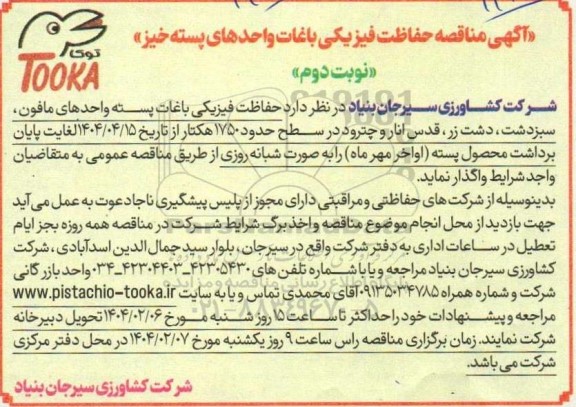 «آگهی مناقصه حفاظت فیزیکی باغات واحدهای پسته خیز»
«نوبت دوم»
توکا
TOOKA
شرکت کشاورزی سیرجان بنیاد در نظر دارد حفاظت فیزیکی باغات پسته واحدهای مافون،
سبزدشت، دشت زر، قدس، انار و چترود در سطح حدود ۱۷۵۰ هکتار از تاریخ ۱۴۰۴/۰۴/۱۵ لغایت پایان
برداشت محصول پسته (اواخر مهر ماه) را به صورت شبانه روزی از طریق مناقصه عمومی به متقاضیان
واجد شرایط واگذار نماید.
بدینوسیله از شرکت های حفاظتی و مراقبتی دارای مجوز از پلیس پیشگیری ناجا دعوت به عمل می آید
جهت بازدید از محل انجام موضوع مناقصه و اخذ برگ شرایط شرکت در مناقصه همه روزه بجز ایام
تعطیل در ساعات اداری به دفتر شرکت واقع در سیرجان، بلوار سید جمال الدین اسدآبادی، شرکت
کشاورزی سیرجان بنیاد مراجعه و یا با شماره تلفن های ۴۲۳۰۵۴۳۰-۴۲۳۰۴۴۰۳-۰۳۴ واحد بازرگانی
شرکت و شماره همراه ۰۹۱۳۵۰۳۴۷۸۵ آقای محمدی تماس و یا به سایت www.pistachio-tooka.ir
مراجعه و پیشنهادات خود را حداکثر تا ساعت ۱۵ روز شنبه مورخ ۱۴۰۴/۰۲/۰۶ تحویل دبیرخانه
شرکت نمایند. زمان برگزاری مناقصه راس ساعت ۹ روز یکشنبه مورخ ۱۴۰۴/۰۲/۰۷ در محل دفتر مرکزی
شرکت می باشد.
شرکت کشاورزی سیرجان بنیاد